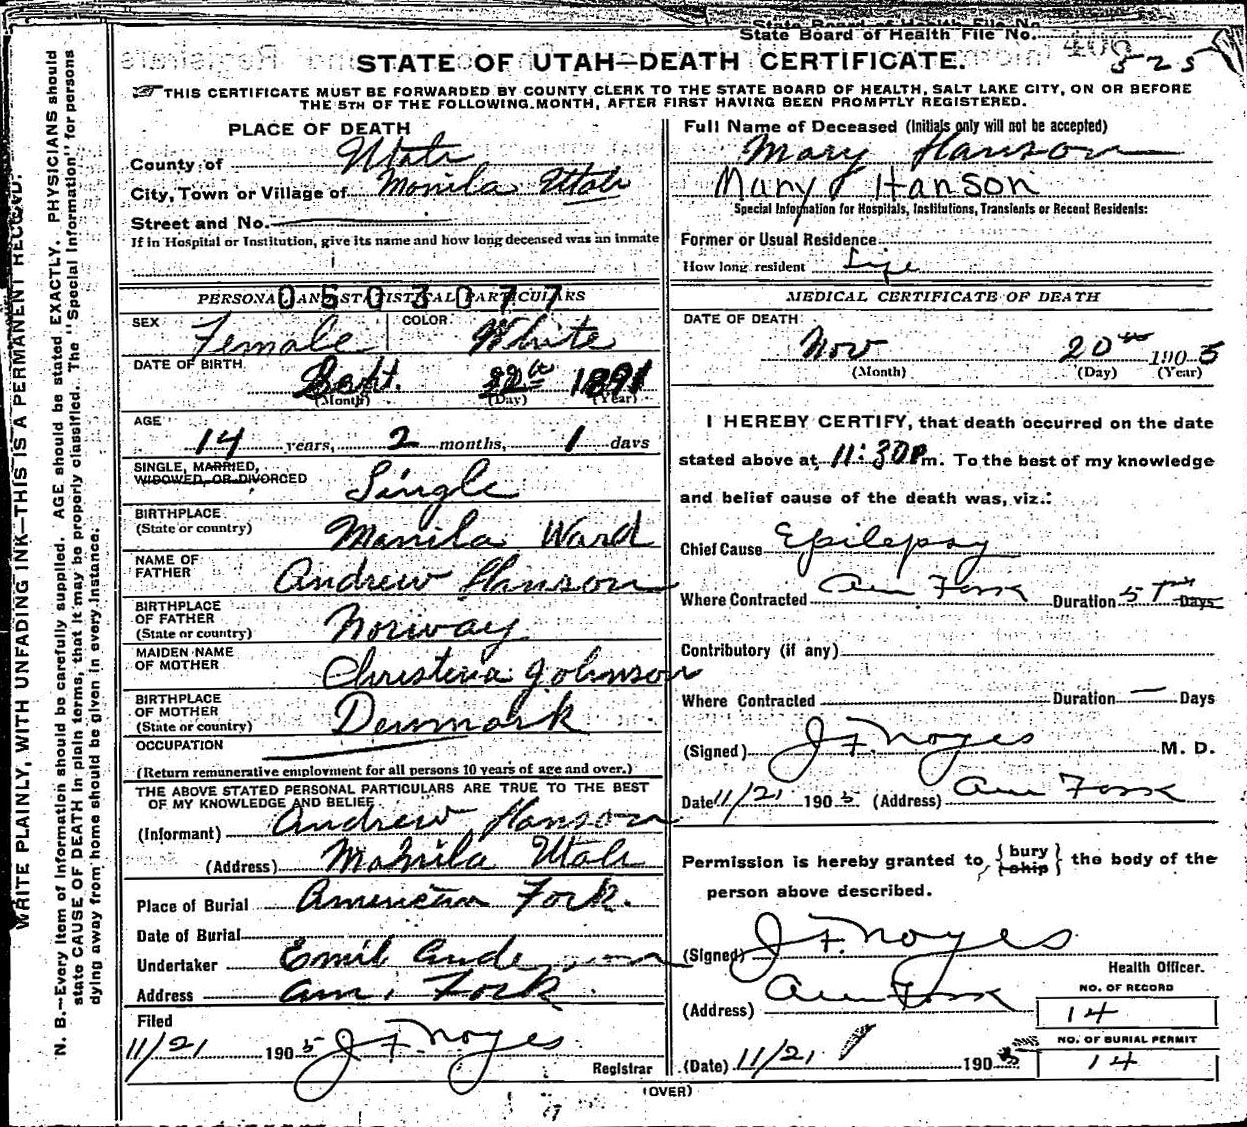 State Board of Health File No.
State Board of Health File No. 408
525
STATE OF UTAH—DEATH CERTIFICATE.
THIS CERTIFICATE MUST BE FORWARDED BY COUNTY CLERK TO THE STATE BOARD OF HEALTH, SALT LAKE CITY, ON OR BEFORE
THE 5TH OF THE FOLLOWING MONTH, AFTER FIRST HAVING BEEN PROMPTLY REGISTERED.
WRITE PLAINLY, WITH UNFADING INK—THIS IS A PERMANENT RECORD.
N. B.—Every item of information should be carefully supplied. AGE should be stated EXACTLY. PHYSICIANS should
state CAUSE OF DEATH in plain terms, that it may be properly classified. The "Special Information" for persons
dying away from home should be given in every instance.
PLACE OF DEATH
County of Utah
City, Town or Village of Monila Utah
Street and No.
If in Hospital or Institution, give its name and how long deceased was an inmate
PERSONAL AND STATISTICAL PARTICULARS
0503077
SEX Female COLOR White
DATE OF BIRTH Sept. 22 1891
(Month) (Day) (Year)
AGE 14 years, 2 months, 1 days
SINGLE, MARRIED,
WIDOWED, OR DIVORCED Single
BIRTHPLACE
(State or country) Manila Ward
NAME OF
FATHER Andrew Hanson
BIRTHPLACE
OF FATHER
(State or country) Norway
MAIDEN NAME
OF MOTHER Christena Johnson
BIRTHPLACE
OF MOTHER
(State or country) Denmark
OCCUPATION
(Return remunerative employment for all persons 10 years of age and over.)
THE ABOVE STATED PERSONAL PARTICULARS ARE TRUE TO THE BEST
OF MY KNOWLEDGE AND BELIEF
(Informant) Andrew Hanson
(Address) Manila Utah
Place of Burial American Fork.
Date of Burial
Undertaker Emil Anderson
Address Am. Fork
Filed
11/21 1905 J F Noyes
Registrar
Full Name of Deceased (Initials only will not be accepted)
Mary Hanson
Mary Hanson
Special Information for Hospitals, Institutions, Transients or Recent Residents:
Former or Usual Residence
How long resident Life
MEDICAL CERTIFICATE OF DEATH
DATE OF DEATH
Nov 20th 1905
(Month) (Day) (Year)
I HEREBY CERTIFY, that death occurred on the date
stated above at 11:30 P m. To the best of my knowledge
and belief cause of the death was, viz.:
Chief Cause Epilepsy
Where Contracted Am Fork Duration 5 Days
Contributory (if any)
Where Contracted Duration — Days
(Signed) J F. Noyes M. D.
Date 11/21 1905 (Address) Am Fork
Permission is hereby granted to {bury
ship} the body of the
person above described.
(Signed) J F. Noyes
Health Officer.
(Address) Am Fork
NO. OF RECORD
14
NO. OF BURIAL PERMIT
14
(Date) 11/21 1905
(OVER)